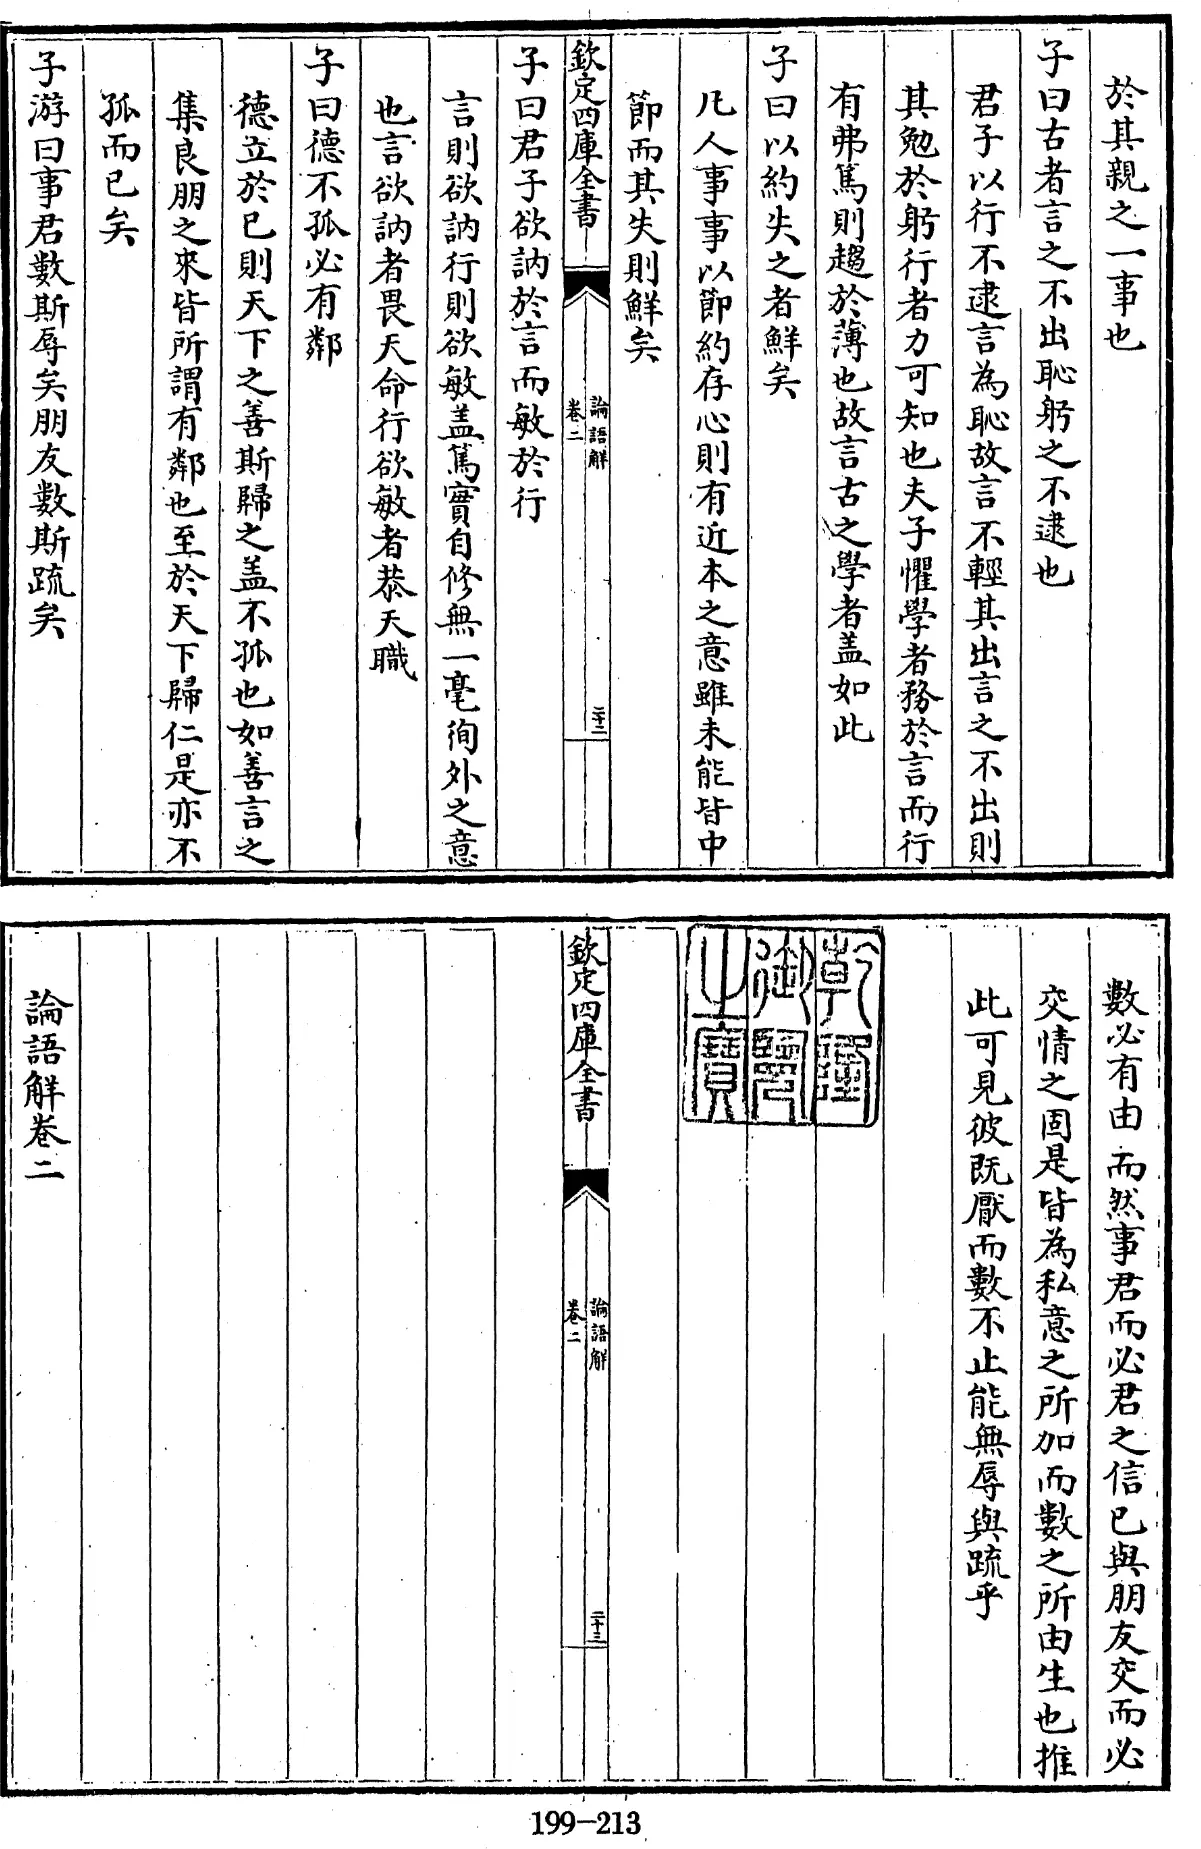 於其親之一事也
子曰古者言之不出恥躬之不逮也
君子以行不逮言為恥故言不輕其出言之不出則
其勉於躬行者力可知也夫子懼學者務於言而行
有弗篤則趨於薄也故言古之學者盖如此
子曰以約失之者鮮矣
凡人事事以節約存心則有近本之意雖未能皆中
節而其失則鮮矣
欽定四庫全書
論語解
卷二
二十二
子曰君子欲訥於言而敏於行
言則欲訥行則欲敏盖篤實自修無一毫徇外之意
也言欲訥者畏天命行欲敏者恭天職
子曰德不孤必有鄰
德立於已則天下之善斯歸之盖不孤也如善言之
集良朋之來皆所謂有鄰也至於天下歸仁是亦不
孤而已矣
子游曰事君數斯辱矣朋友數斯疏矣
數必有由而然事君而必君之信已與朋友交而必
交情之固是皆為私意之所加而數之所由生也推
此可見彼既厭而數不止能無辱與疏乎
乾隆
御覽
之寶
欽定四庫全書
論語解
卷二
二十三
論語解卷二
199-213